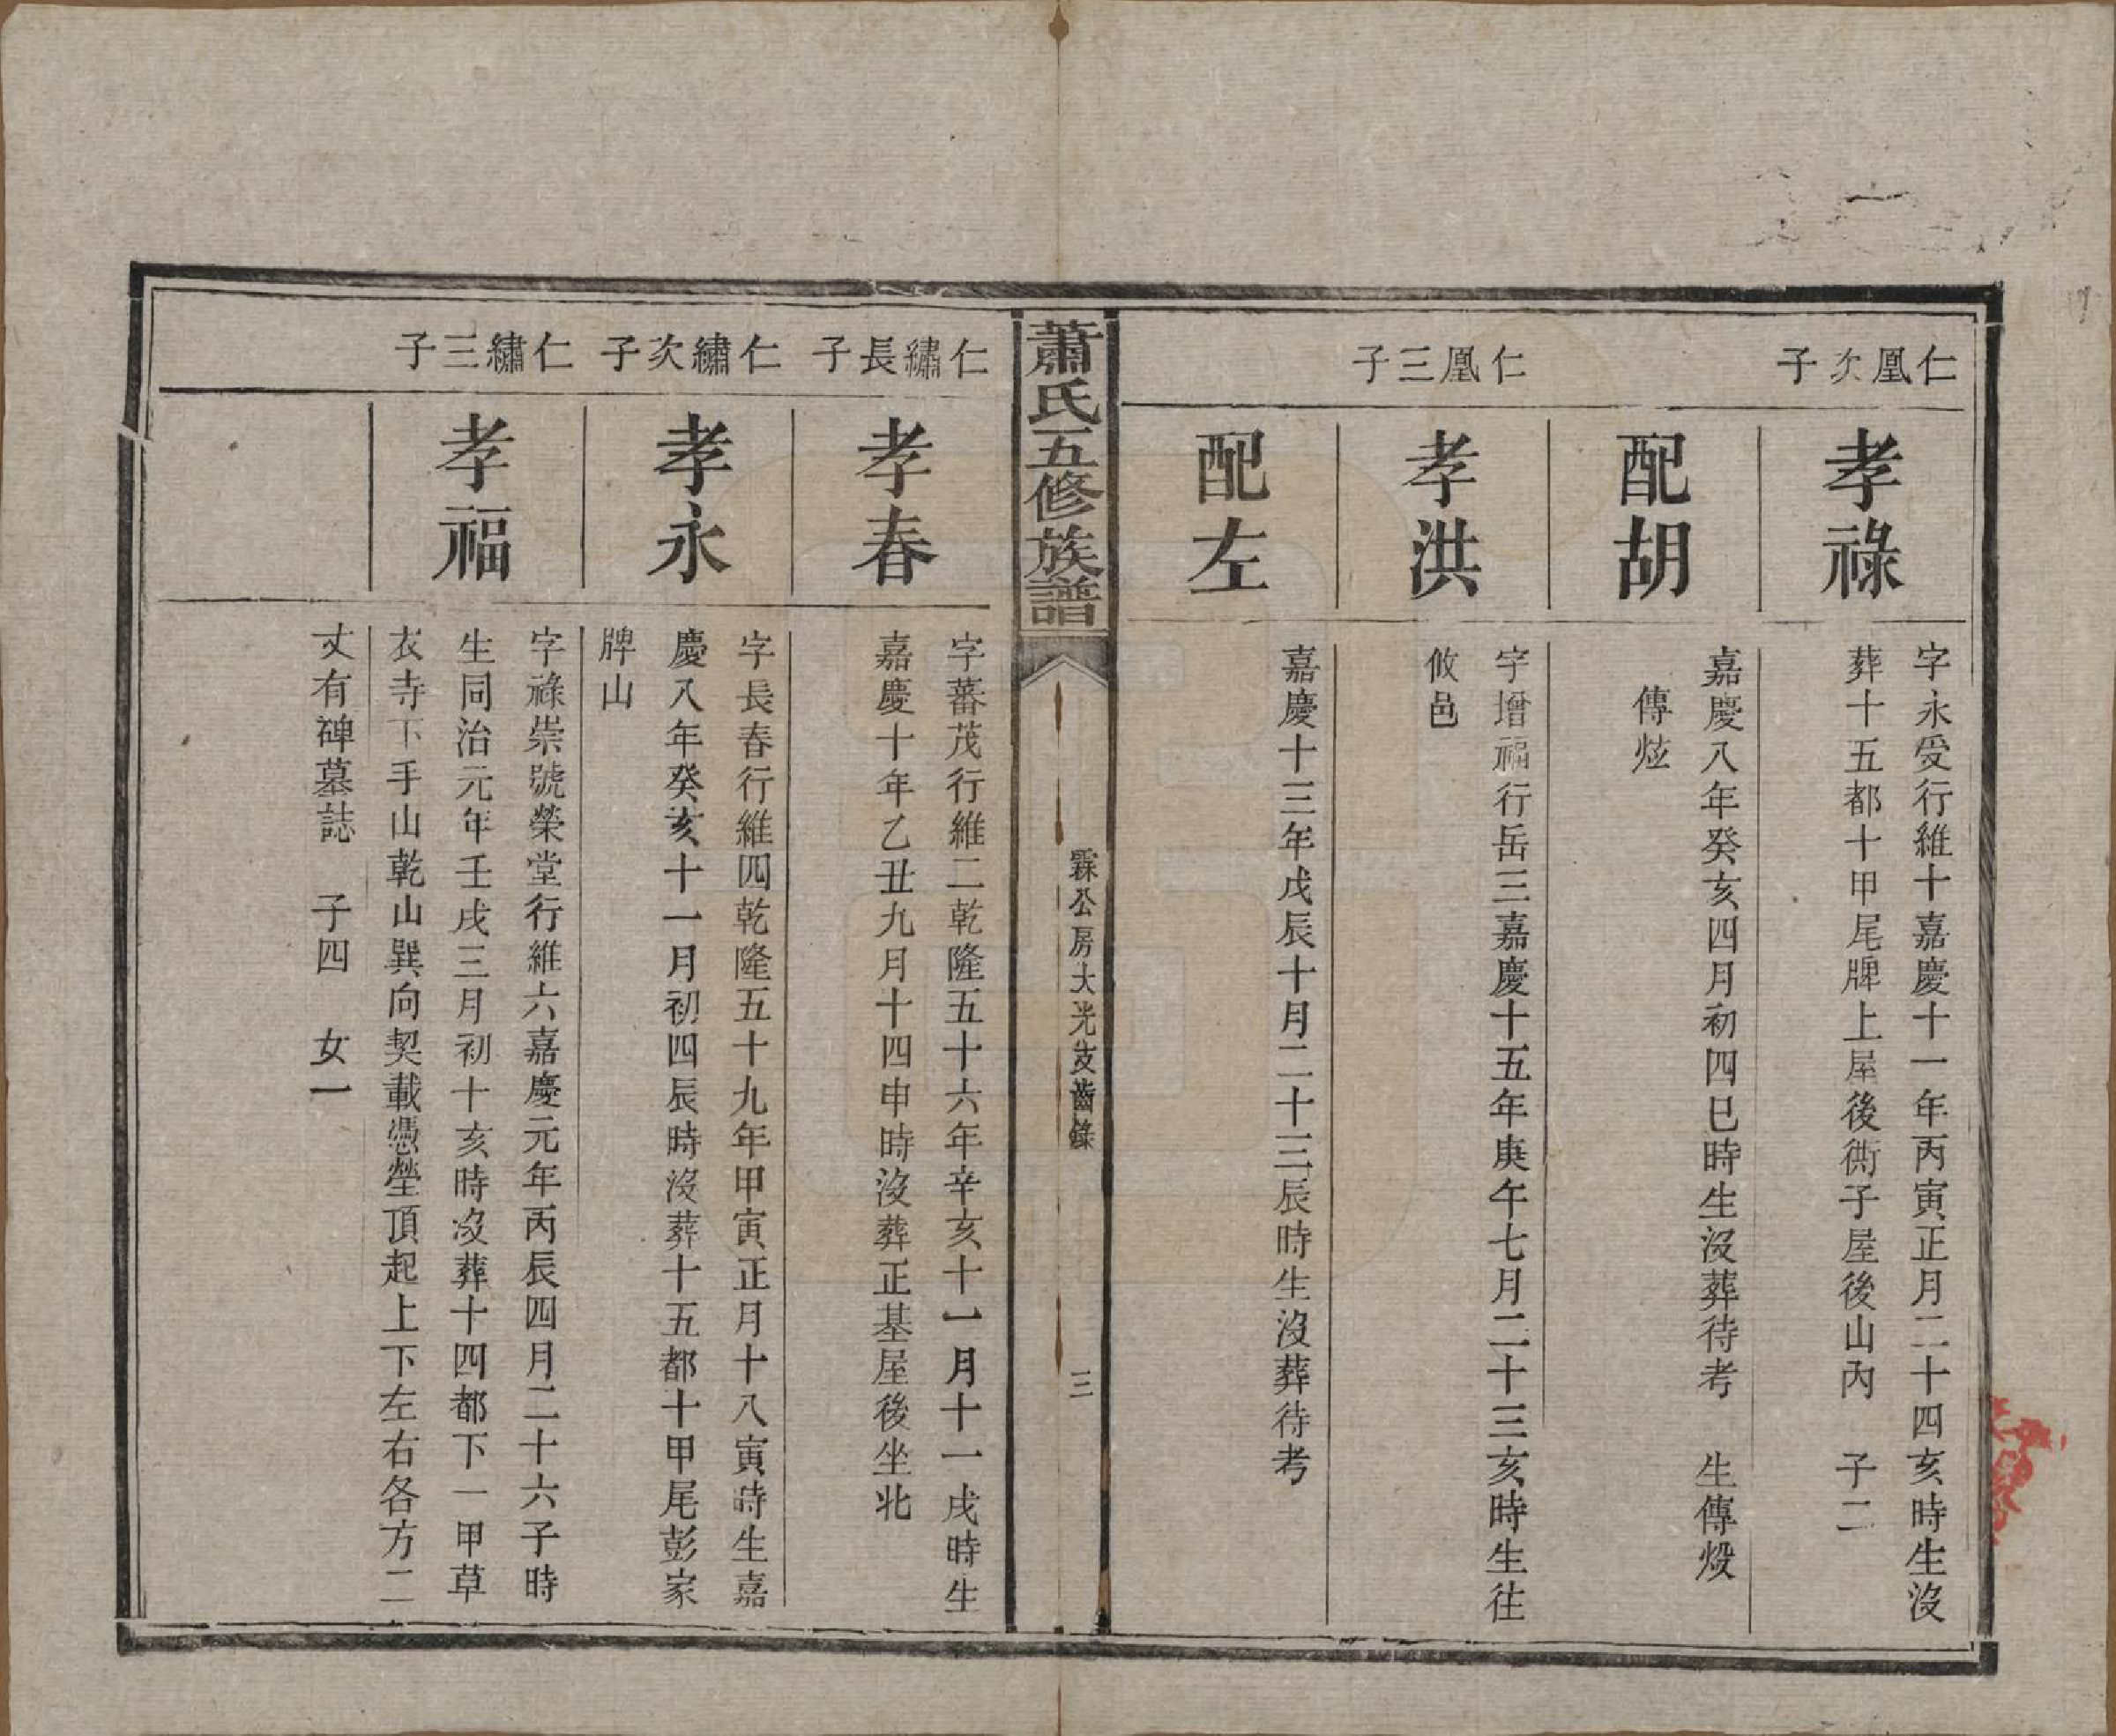 仁凰次子
孝祿
字永受行維十嘉慶十一年丙寅正月二十四亥時生沒
葬十五都十甲尾牌上屋後衖子屋後山內　子二
配胡
嘉慶八年癸亥四月初四巳時生沒葬待考　生傳煅
傳炫
仁凰三子
孝洪
字增福行岳三嘉慶十五年庚午七月二十三亥時生往
攸邑
配左
嘉慶十三年戊辰十月二十三辰時生沒葬待考
蕭氏五修族譜
霖公房大光支齒錄
三
仁繡長子
孝春
字蕃茂行維二乾隆五十六年辛亥十一月十一戌時生
嘉慶十年乙丑九月十四申時沒葬正基屋後坐北
仁繡次子
孝永
字長春行維四乾隆五十九年甲寅正月十八寅時生嘉
慶八年癸亥十一月初四辰時沒葬十五都十甲尾彭家
牌山
仁繡三子
孝福
字祿崇號榮堂行維六嘉慶元年丙辰四月二十六子時
生同治元年壬戌三月初十亥時沒葬十四都下一甲草
衣寺下手山乾山巽向契載憑塋頂起上下左右各方二
丈有碑墓誌　子四　女一